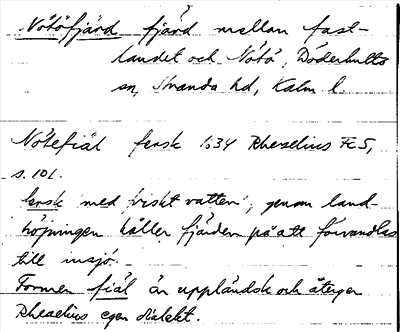 Nötöfjärd fjärd mellan fast-
landet och Nötö, Döderhults
sn, Stranda hd, Kalm. l.
Nötefiäl fersk 1634 Rhezelius Fc5,
s. 101.
fersk 'med friskt vatten', genom land-
höjningen håller fjärden på att förvandlas
till insjö.
Formen fiäl är uppländsk och återger
Rhezelius egen dialekt.